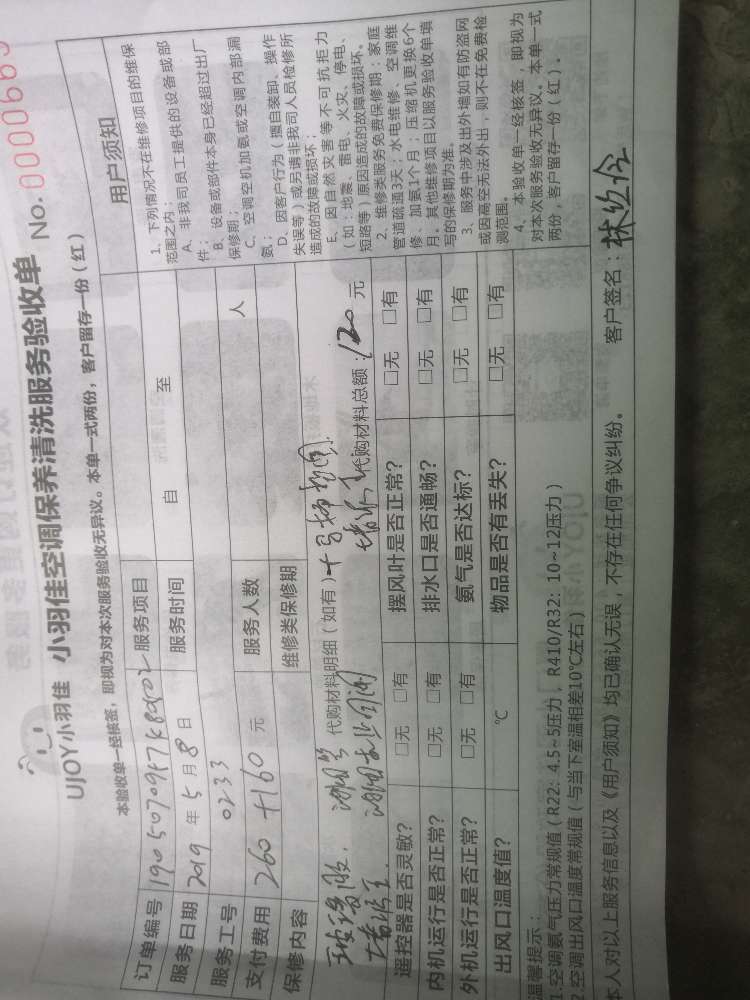 UJOY小羽佳 小羽佳空调保养清洗服务验收单 No. 0000665
本验收单一经核签，即视为对本次服务验收无异议。本单一式两份，客户留存一份（红）
订单编号
服务项目
服务日期 2019 年 5 月 8 日
服务时间 自 至
服务工号 0233
支付费用 260 +160 元
服务人数 人
保修内容
维修类保修期
代购材料明细（如有）
代购材料总额：120 元
遥控器是否灵敏？ □无 □有 摆风叶是否正常？ □无 □有
内机运行是否正常？ □无 □有 排水口是否通畅？ □无 □有
外机运行是否正常？ □无 □有 氨气是否达标？ □无 □有
出风口温度值？ ℃ 物品是否有丢失？ □无 □有
用户须知
1、下列情况不在维修项目的维保
范围之内：
A、非我司员工提供的设备或部
件；
B、设备或部件本身已经超过出厂
保修期；
C、空调空机加氨或空调内部漏
氨；
D、因客户行为（擅自装卸、操作
失误等）或另请非我司人员检修所
造成的故障或损坏；
E、因自然灾害等不可抗拒力
（如：地震、雷电、火灾、停电、
短路等）原因造成的故障或损坏。
2、维修类服务免费保修期：家庭
管道疏通3天；水电维修、空调维
修、加氨1个月；压缩机更换6个
月。其他维修项目以服务验收单填
写的保修期为准。
3、服务中涉及出外墙如有防盗网
或因高空无法外出，则不在免费检
测范围。
4、本验收单一经核签，即视为
对本次服务验收无异议。本单一式
两份，客户留存一份（红）。
温馨提示：
1.空调氨气压力常规值（R22：4.5~5压力，R410/R32：10~12压力）
2.空调出风口温度常规值（与当下室温相差10℃左右）
本人对以上服务信息以及《用户须知》均已确认无误，不存在任何争议纠纷。 客户签名：